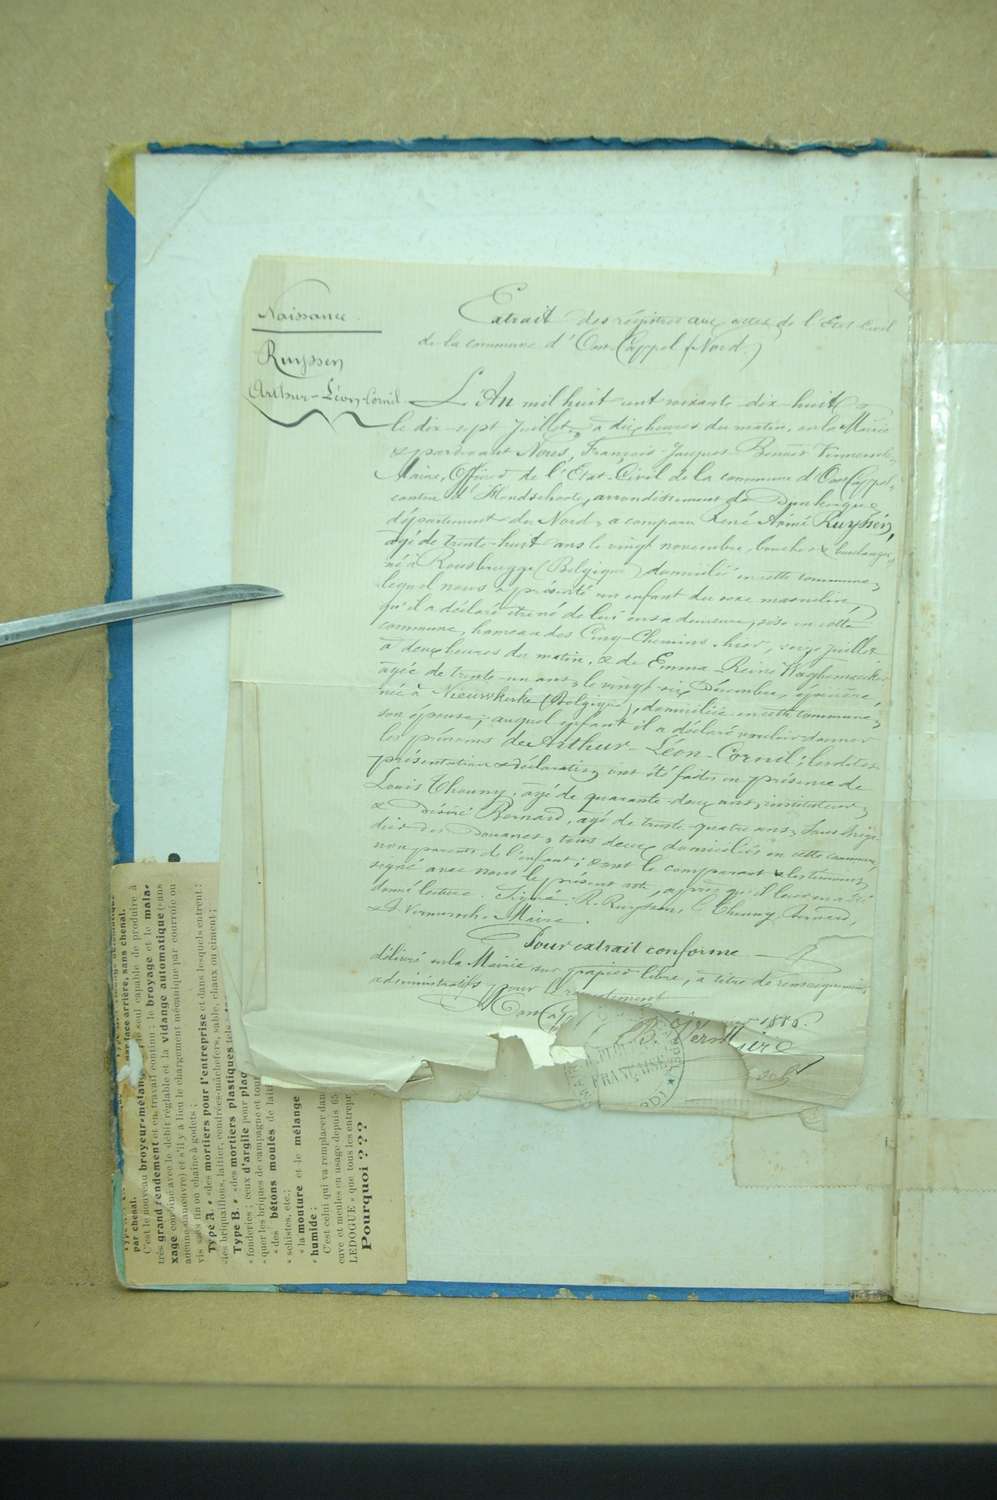 Naissance
Ruyssen
Arthur-Léon Cornil
Extrait des régistres aux actes de l'Etat Civil
de la commune d'Oost-Cappel (Nord.)
L'An mil huit cent soixante dix-huit
le dix-sept Juillet, à dix heures du matin, en la Mairie
& pardevant Nous, François-Jacques-Benoit
Maire, Officier de l'Etat-Civil de la commune d'Oost-Cappel,
canton d'Hondschoote, arrondissement de Dunkerque,
département du Nord, a comparu René Aimé Ruyssen,
agé de trente-huit ans le vingt novembre, boucher & boulanger,
né à Rousbrugge (Belgique) domicilié en cette commune,
lequel nous a présenté un enfant du sexe masculin
qu'il a déclaré être né de lui en sa demeure, sise en cette
commune, hameau des Cinq-Chemins, hier, seize juillet
à deux heures du matin, & de Emma-Reine Waghemacker
agée de trente-un ans le vingt-six Décembre,
née à Nieuwkerke (Belgique), domiciliée en cette commune,
son épouse; auquel enfant il a déclaré vouloir donner
les prénoms de Arthur-Léon-Cornil; lesdites
présentation & déclaration ont été faites en présence de
Louis Thouny, agé de quarante-deux ans, instituteur,
& Désiré Bernard, agé de trente-quatre ans, Sous Briga-
dier des Douanes, tous deux domiciliés en cette commune,
non parents de l'enfant; & ont le comparant & les témoins
signé avec nous le présent acte, après qu'il leur en a été
donné lecture. Signé: R. Ruyssen, Thouny, Bernard,
& Maire
Pour extrait conforme
délivré en la Mairie sur papier libre, à titre de renseignements
administratifs pour
1886.
Maire
FRANÇAISE
par chenal.
C'est le nouveau broyeur-mélan le seul capable de produire à
très grand rendement et en travail continu : le broyage et le mala-
xage combiné avec le débit réglable et la vidange automatique (sans
aucune manœuvre) et s'il y a lieu le chargement mécanique par courroie ou
vis sans fin ou chaîne à godets ;
Type A « des mortiers pour l'entreprise et dans lesquels entrent :
des briquaillons, laitier, cendrées-mâchefers, sable, chaux ou ciment ;
Type B « des mortiers plastiques tels
« fonderies ; ceux d'argile pour plac
« quer les briques de campagne et tou
« des bétons moulés de laiti
« schistes, etc.;
« la mouture et le mélange
« humide ;
C'est celui qui va remplacer dan
cuve et meules en usage depuis 65
LEDOGUE « que tous les entrepr
Pourquoi ???